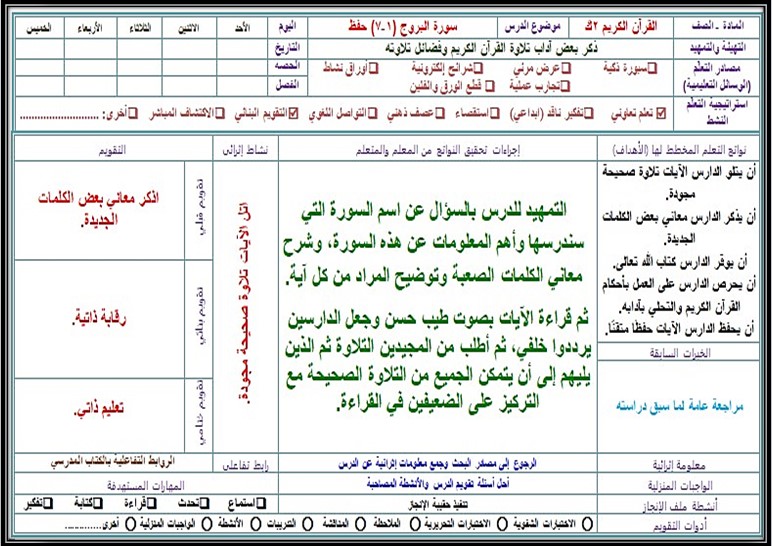 المادة - الصف
القرآن الكريم ٢ك
موضوع الدرس
سورة البروج (١-٧) حفظ
اليوم
الأحد
الاثنين
الثلاثاء
الأربعاء
الخميس
التهيئة والتمهيد
ذكر بعض آداب تلاوة القرآن الكريم وفضائل تلاوته
التاريخ
مصادر التعلم
(الوسائل التعليمية)
سبورة ذكية
عرض مرئي
شرائح إلكترونية
أوراق نشاط
تجارب عملية
قطع الورق والفلين
الحصة
الفصل
استراتيجية التعلم
النشط
تعلم تعاوني
تفكير ناقد (ابداعي)
استقصاء
عصف ذهني
التواصل اللغوي
التقويم البنائي
الاكتشاف المباشر
أخرى: ............................
نواتج التعلم المخطط لها (الأهداف)
إجراءات تحقيق النواتج من المعلم والمتعلم
نشاط إثرائي
التقويم
أن يتلو الدارس الآيات تلاوة صحيحة
مجودة.
أن يذكر الدارس معاني بعض الكلمات
الجديدة.
أن يوقر الدارس كتاب الله تعالى.
أن يحرص الدارس على العمل بأحكام
القرآن الكريم والتحلي بآدابه.
أن يحفظ الدارس الآيات حفظًا متقنًا.
الخبرات السابقة
مراجعة عامة لما سبق دراسته
التمهيد للدرس بالسؤال عن اسم السورة التي
سندرسها وأهم المعلومات عن هذه السورة، وشرح
معاني الكلمات الصعبة وتوضيح المراد من كل آية.
ثم قراءة الآيات بصوت طيب حسن وجعل الدارسين
يرددوا خلفي، ثم أطلب من المجيدين التلاوة ثم الذين
يليهم إلى أن يتمكن الجميع من التلاوة الصحيحة مع
التركيز على الضعيفين في القراءة.
اتل الآيات تلاوة صحيحة مجودة.
تقويم قبلي
اذكر معاني بعض الكلمات
الجديدة.
تقويم بنائي
رقابة ذاتية.
تقويم ختامي
تعليم ذاتي.
معلومة إثرائية
الرجوع إلى مصادر البحث وجمع معلومات إثرائية عن الدرس
رابط تفاعلي
الروابط التفاعلية بالكتاب المدرسي
الواجبات المنزلية
أحل أسئلة تقويم الدرس والأنشطة المصاحبة
المهارات المستهدفة
أنشطة ملف الإنجاز
تنفيذ حقيبة الإنجاز
استماع
تحدث
قراءة
كتابة
تفكير
أدوات التقويم
الاختبارات الشفوية
الاختبارات التحريرية
الملاحظة
المناقشة
التدريبات
الأنشطة
الواجبات المنزلية
أخرى..............